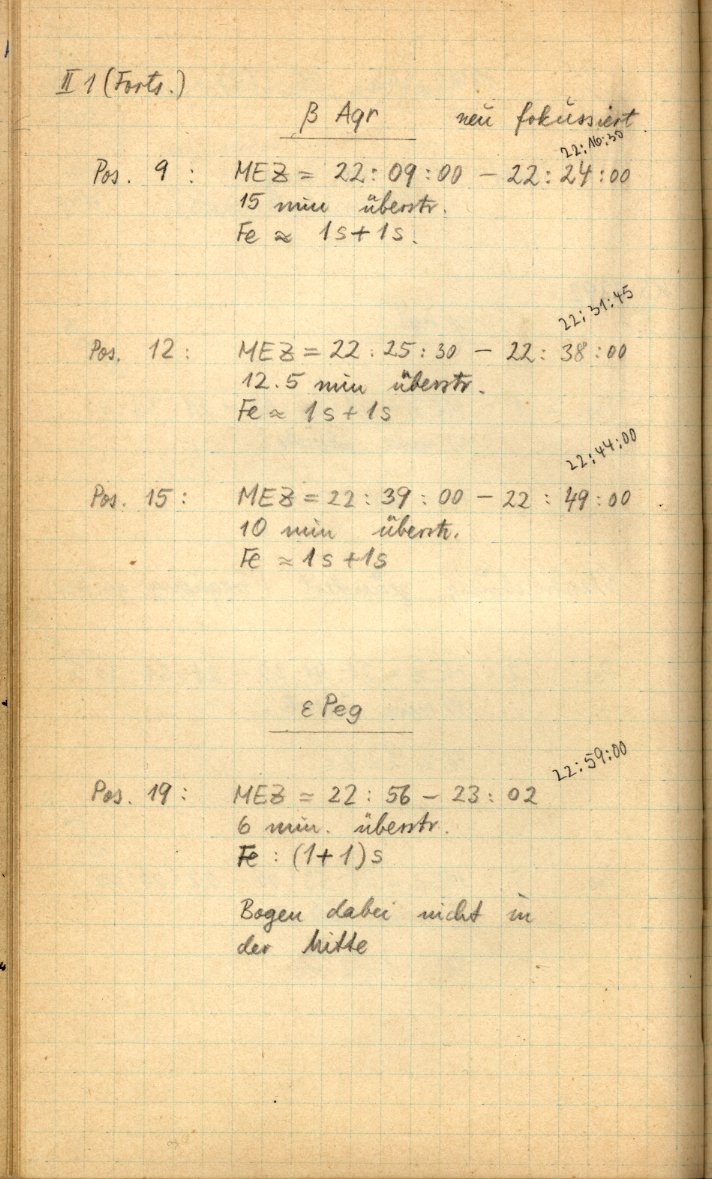 II 1 (Forts.)
β Aqr neu fokussiert
22:16:30
Pos. 9 : MEZ = 22 : 09 : 00 – 22 : 24 : 00
15 min überstr.
Fe ≈ 1s + 1s.
22:31:45
Pos. 12 : MEZ = 22 : 25 : 30 – 22 : 38 : 00
12.5 min überstr.
Fe ≈ 1s + 1s
22:44:00
Pos. 15 : MEZ = 22 : 39 : 00 – 22 : 49 : 00
10 min überstr.
Fe ≈ 1s + 1s
ε Peg
22:59:00
Pos. 19 : MEZ = 22 : 56 – 23 : 02
6 min. überstr.
Fe : (1+1)s
Bogen dabei nicht in
der Mitte